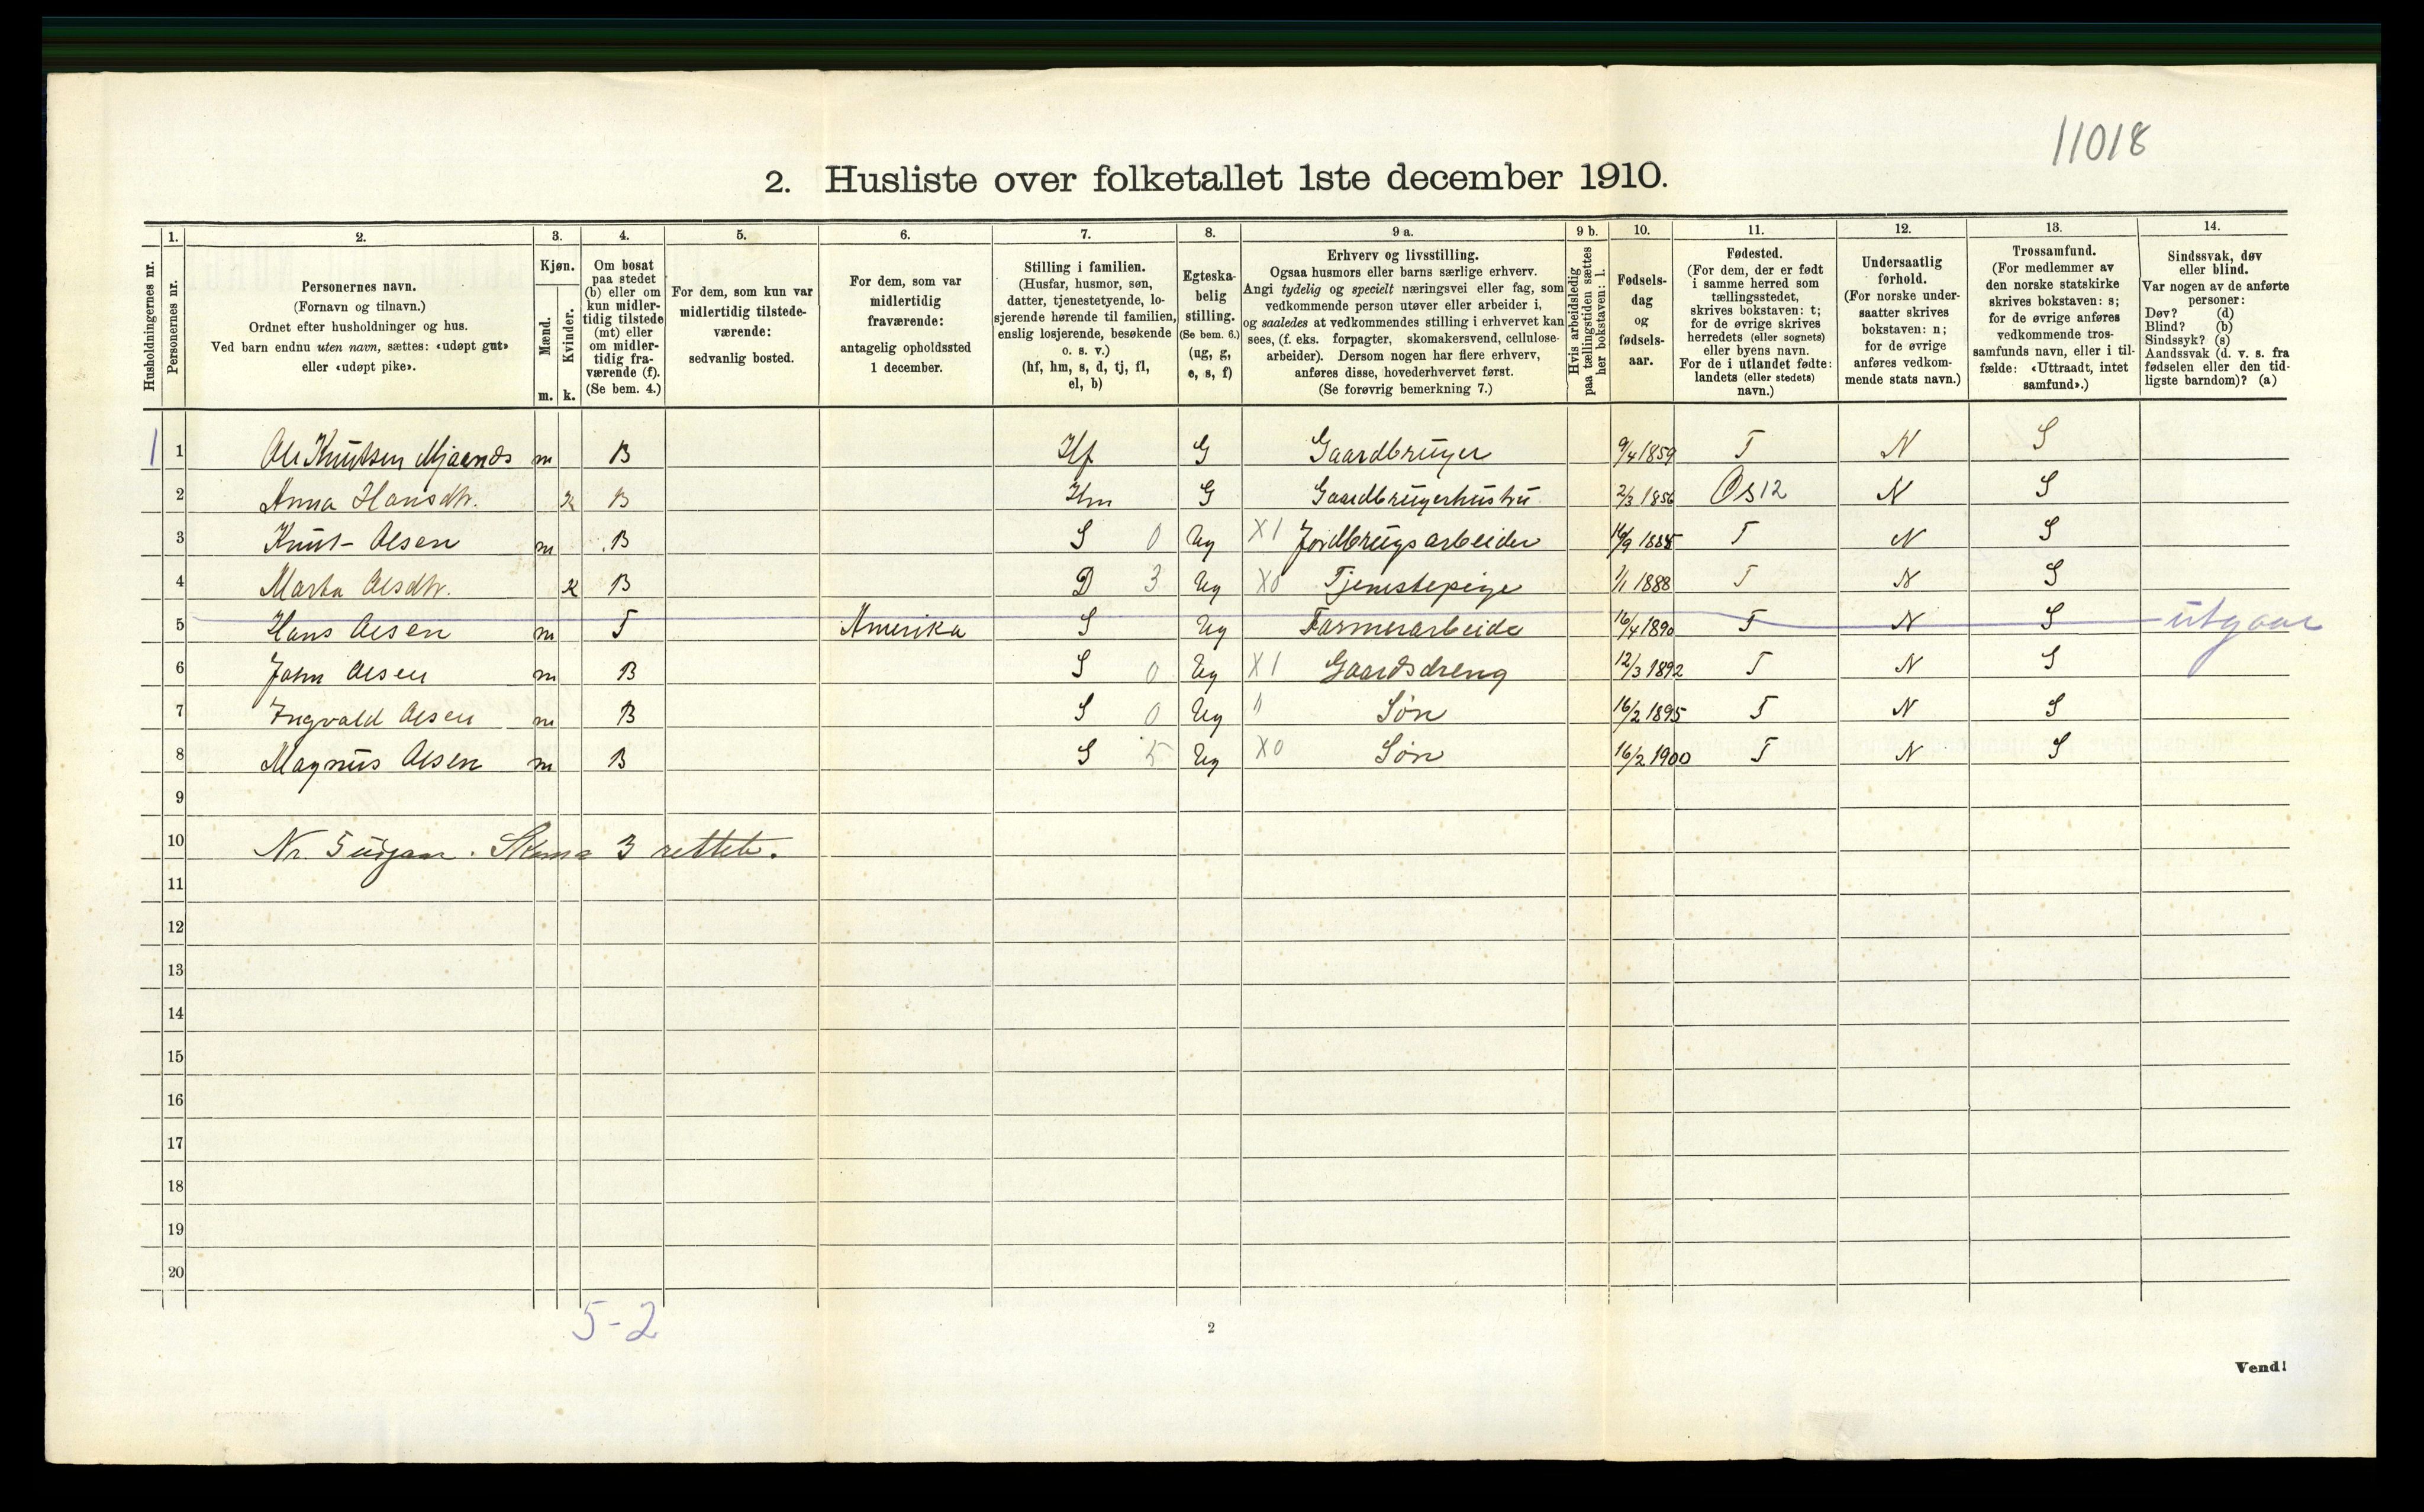 11018
2. Husliste over folketallet 1ste december 1910.
Husholdningernes nr.
1. Personernes nr.
2. Personernes navn.
(Fornavn og tilnavn.)
Ordnet efter husholdninger og hus.
Ved barn endnu uten navn, sættes: «udøpt gut»
eller «udøpt pike».
3. Kjøn.
Mænd. Kvinder.
m. k.
4. Om bosat
paa stedet
(b) eller om
kun midler-
tidig tilstede
(mt) eller
om midler-
tidig fra-
værende (f).
(Se bem. 4.)
5. For dem, som kun var
midlertidig tilstede-
værende:
sedvanlig bosted.
6. For dem, som var
midlertidig
fraværende:
antagelig opholdssted
1 december.
7. Stilling i familien.
(Husfar, husmor, søn,
datter, tjenestetyende, lo-
sjerende hørende til familien,
enslig losjerende, besøkende
o. s. v.)
(hf, hm, s, d, tj, fl,
el, b)
8. Egteska-
belig
stilling.
(Se bem. 6.)
(ug, g,
e, s, f)
9 a. Erhverv og livsstilling.
Ogsaa husmors eller barns særlige erhverv.
Angi tydelig og specielt næringsvei eller fag, som
vedkommende person utøver eller arbeider i,
og saaledes at vedkommendes stilling i erhvervet kan
sees, (f. eks. forpagter, skomakersvend, cellulose-
arbeider). Dersom nogen har flere erhverv,
anføres disse, hovederhvervet først.
(Se forøvrig bemerkning 7.)
9 b. Hvis arbeidsledig
paa tællingstiden sættes
her bokstaven: l.
10. Fødsels-
dag
og
fødsels-
aar.
11. Fødested.
(For dem, der er født
i samme herred som
tællingsstedet,
skrives bokstaven: t;
for de øvrige skrives
herredets (eller sognets)
eller byens navn.
For de i utlandet fødte:
landets (eller stedets)
navn.)
12. Undersaatlig
forhold.
(For norske under-
saatter skrives
bokstaven: n;
for de øvrige
anføres vedkom-
mende stats navn.)
13. Trossamfund.
(For medlemmer av
den norske statskirke
skrives bokstaven: s;
for de øvrige anføres
vedkommende tros-
samfunds navn, eller i til-
fælde: «Uttraadt, intet
samfund».)
14. Sindssvak, døv
eller blind.
Var nogen av de anførte
personer:
Døv? (d)
Blind? (b)
Sindssyk? (s)
Aandssvak (d. v. s. fra
fødselen eller den tid-
ligste barndom)? (a)
1 1 Ole Knutsen Mjaanæs m B Hf G Gaardbruger 9/4 1859 T N S
2 Anna Hansdtr. K B Hm G Gaardbrugerhustru 2/3 1856 Os 12 N S
3 Knut Olsen m B S 0 Ug X1 Jordbrugsarbeider 1885 T N S
4 Marta Olsdtr. K B D 3 Ug X0 Tjenstepige 1/1 1888 T N S
5 Hans Olsen m F Amerika S Ug Farmerarbeide 16/4 1890 T N S utgaar
6 John Olsen m B S 0 Ug X1 Gaardsdreng 12/3 1892 T N S
7 Ingvald Olsen m B S 0 Ug " Søn 16/2 1895 T N S
8 Magnus Olsen m B S 5 Ug X0 Søn 16/2 1900 T N S
9
10 Nr. 5 udgaar. Skema 3 rettet.
11
12
13
14
15
16
17
18
19
20
5-2
2
Vend!